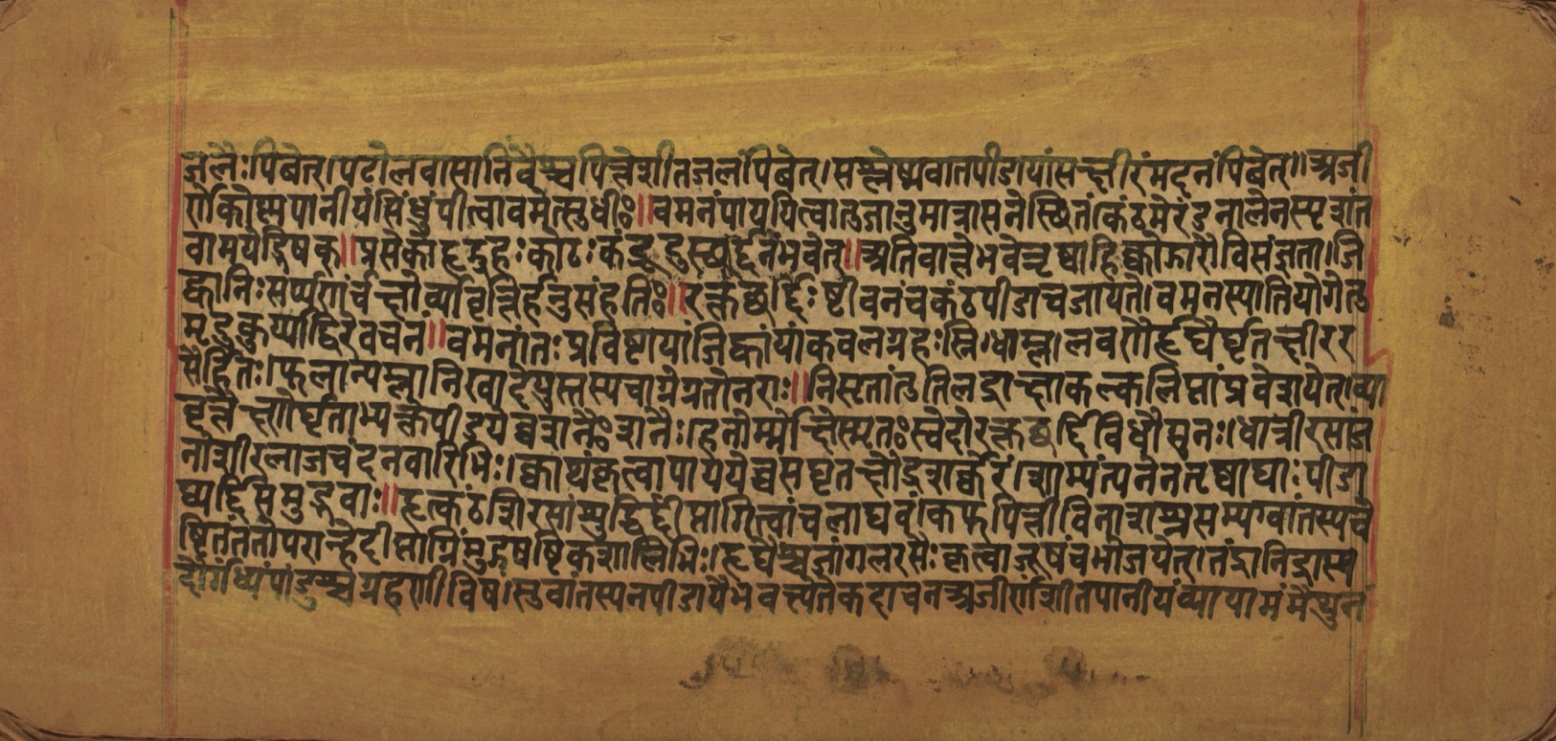 जलैःपिबेत्।पटोलवासानिंवैश्चपित्तेशीतजलंपिबेत्।सश्लेष्मवातपीडायांसक्षीरंमदनंपिबेत्॥अजी
र्णेकोष्णपानीयंसिंधुंपीत्वावमेत्सुधीः॥वमनंपाययित्वातुजानुमात्रासनेस्थितं।कंठमेरंडनालेनस्पृशंत
वामयेद्भिषक्॥प्रसेकोहृद्ग्रहःकोठःकंडूदुस्छर्द्दितेभवेत्॥अतिवान्तेभवेत्तृष्णाहिक्कोद्गारौविसंज्ञता।जि
ह्वानिःसर्प्पणंचक्ष्णोर्व्यावृत्तिर्हनुसंहतिः॥रक्तछर्द्दिःष्टीवनंचकंठपीडाचजायते।वमनस्यातियोगेतु
मृदुकुर्य्याद्विरेवचनं॥वमनांतःप्रविष्टायांजिह्वायांकवलग्रहःस्निग्धाम्ललवणैर्हृद्यैर्घृतक्षीरर
सैर्हितः।फलान्यम्लानिखादेयुस्तस्यचाग्रेग्रतोनराः॥निसृतांतुतिलद्राक्षाकल्कलिप्तांप्रवेशयेत्।व्या
वृत्तेक्ष्णोर्घृताभ्यक्तेपीडयेच्चशनैःशनैः।हनोम्मोक्षेस्मृतःस्वेदोरक्तछर्द्दिविधौसुनः।धात्रीरसांज
नोशीरलाजचंदनवारिभिः।क्वाथंकृत्वापाययेच्चसघृतक्षौद्रशर्क्करं।शाम्यंत्यनेनतृष्णाद्याःपीडा
छर्द्दिसमुद्भवाः॥हृत्कंठशिरसांस्रुद्धिर्द्दीप्ताग्नित्वांचलाघवं।कफपित्तविनाशश्चसम्यग्वांतस्यचे
ष्टितंततोपराह्नेदीप्ताग्निंमुद्गषष्टिकशालिभिः।हृद्यैश्चजांगलरसैःकृत्वाजूषंचभोजयेत्।तंद्रानिद्रास्य
दौर्गंध्यंपांडुश्चग्रहणीविष।स्तुवांतस्यनपीडायैभवत्त्येतेकदाचनअजीर्णंशीतपानीयंव्यायामंमैथुनं